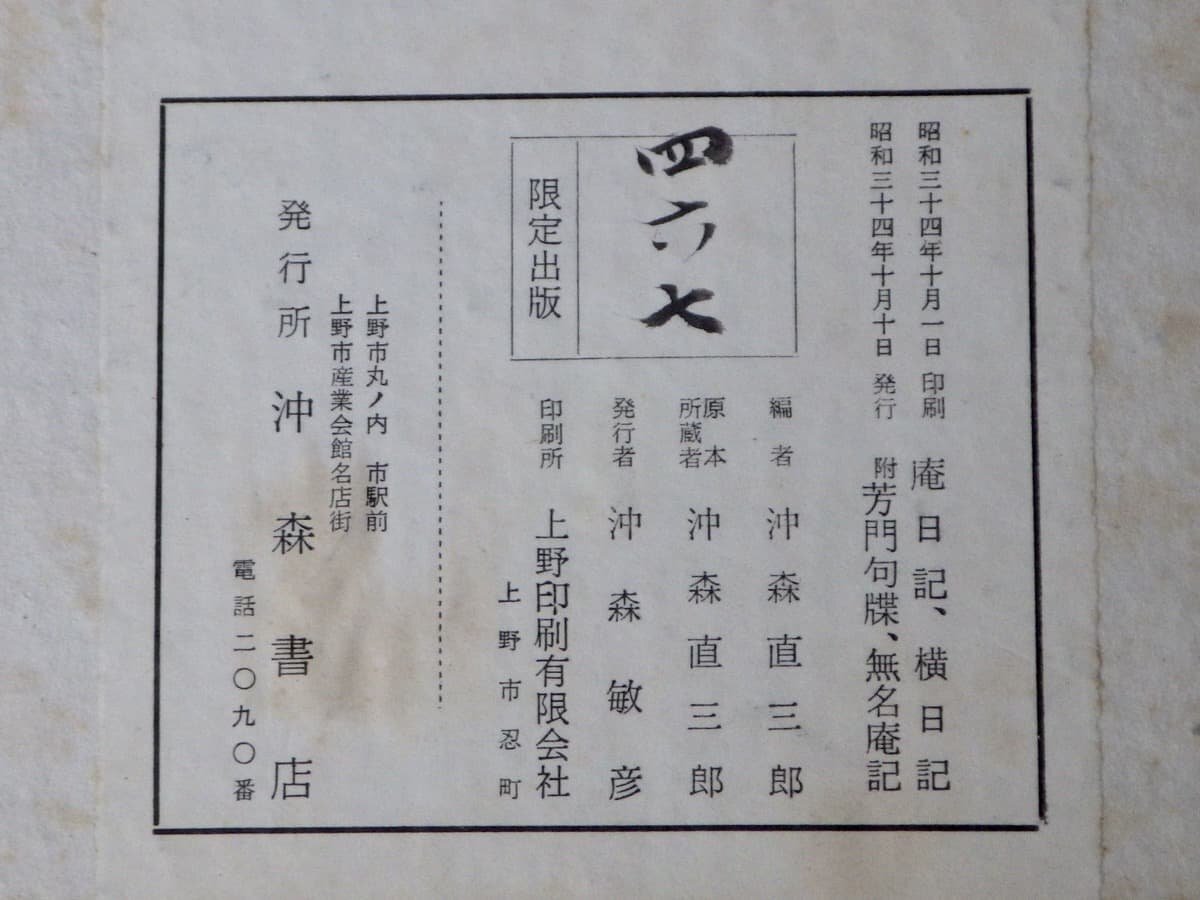 昭和三十四年十月一日 印刷
昭和三十四年十月十日 発行
庵日記、横日記
附芳門句牒、無名庵記
四六七
限定出版
編者 沖森直三郎
原本所蔵者 沖森直三郎
発行者 沖森敏彦
印刷所 上野印刷有限会社
上野市忍町
上野市丸ノ内 市駅前
上野市産業会館名店街
発行所 沖森書店
電話二〇九〇番